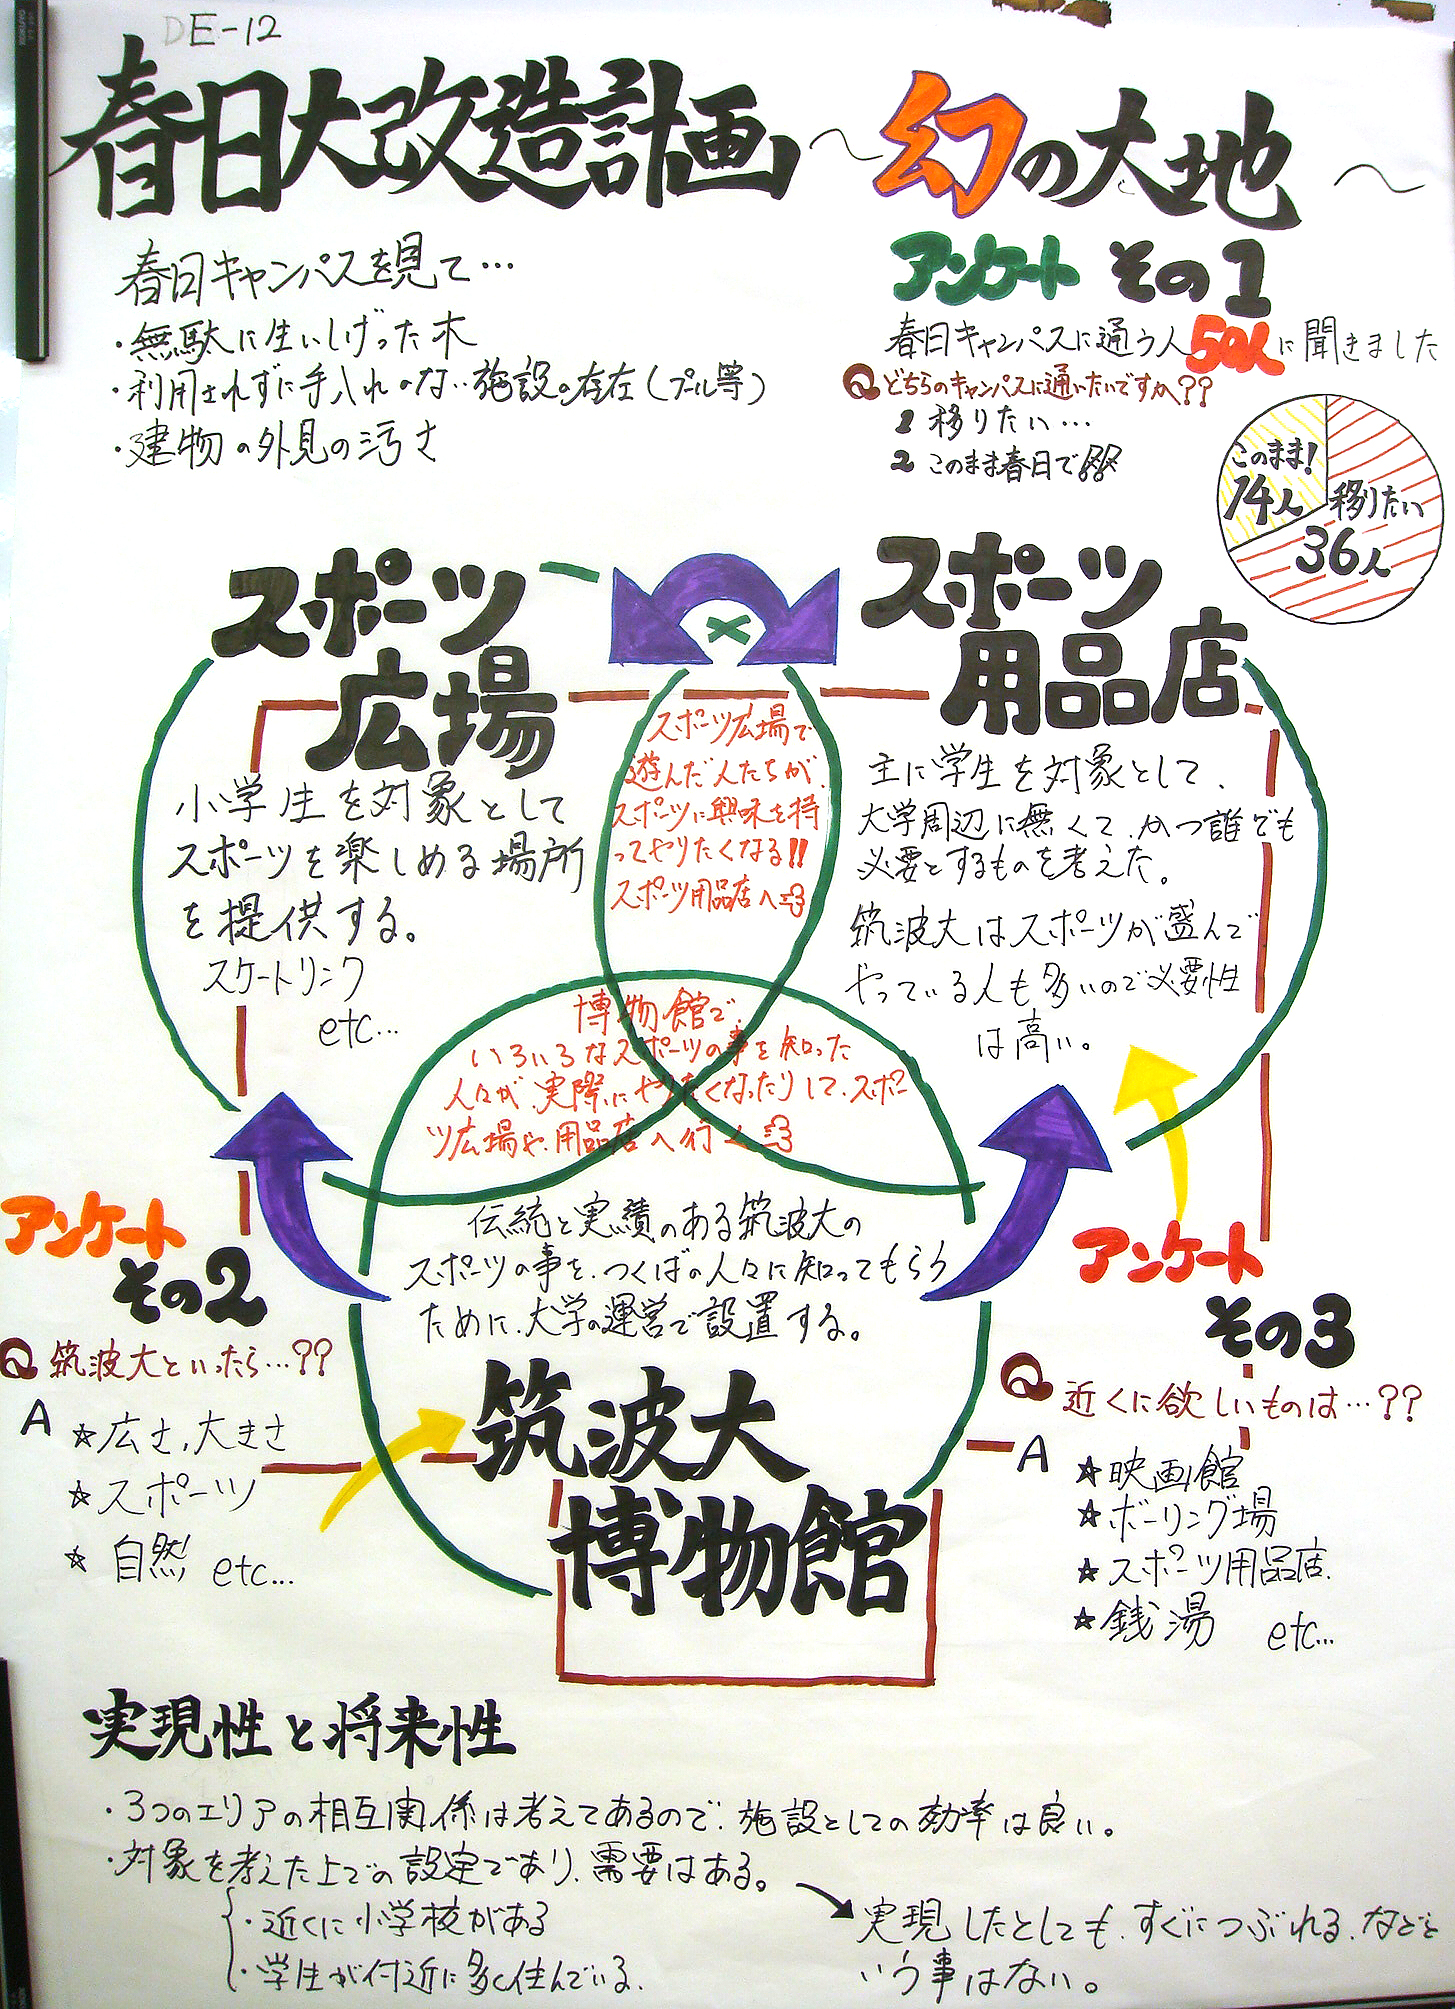 E-12
春日大改造計画 ～幻の大地～
春日キャンパスを見て…
・無駄に生いしげった木
・利用されずに手入れのない施設の存在(プール等)
・建物の外見の汚さ
アンケート その1
春日キャンパスに通う人50人に聞きました
Qどちらのキャンパスに通いたいですか??
1 移りたい…
2 このまま春日で!!
このまま!
14人
移りたい
36人
スポーツ
広場
小学生を対象として
スポーツを楽しめる場所
を提供する。
スケートリンク
etc…
スポーツ広場で
遊んだ人たちが、
スポーツに興味を持
ってやりたくなる!!
スポーツ用品店へ
スポーツ
用品店
主に学生を対象として、
大学周辺に無くて、かつ誰でも
必要とするものを考えた。
筑波大はスポーツが盛んで
やっている人も多いので必要性
は高い。
博物館で、
いろいろなスポーツの事を知った
人々が、実際にやりたくなったりして、スポー
ツ広場や、用品店へ行く
伝統と実績のある筑波大の
スポーツの事を、つくばの人々に知ってもらう
ために、大学の運営で設置する。
筑波大
博物館
アンケート
その2
Q 筑波大といったら…??
A ☆広さ,大きさ
☆スポーツ
☆自然 etc…
アンケート
その3
Q 近くに欲しいものは…??
A ☆映画館
☆ボーリング場
☆スポーツ用品店
☆銭湯 etc…
実現性と将来性
・3つのエリアの相互関係は考えてあるので、施設としての効率は良い。
・対象を考えた上での設定であり、需要はある。
・近くに小学校がある
・学生が付近に多く住んでいる。
実現したとしても、すぐにつぶれる、などと
いう事はない。